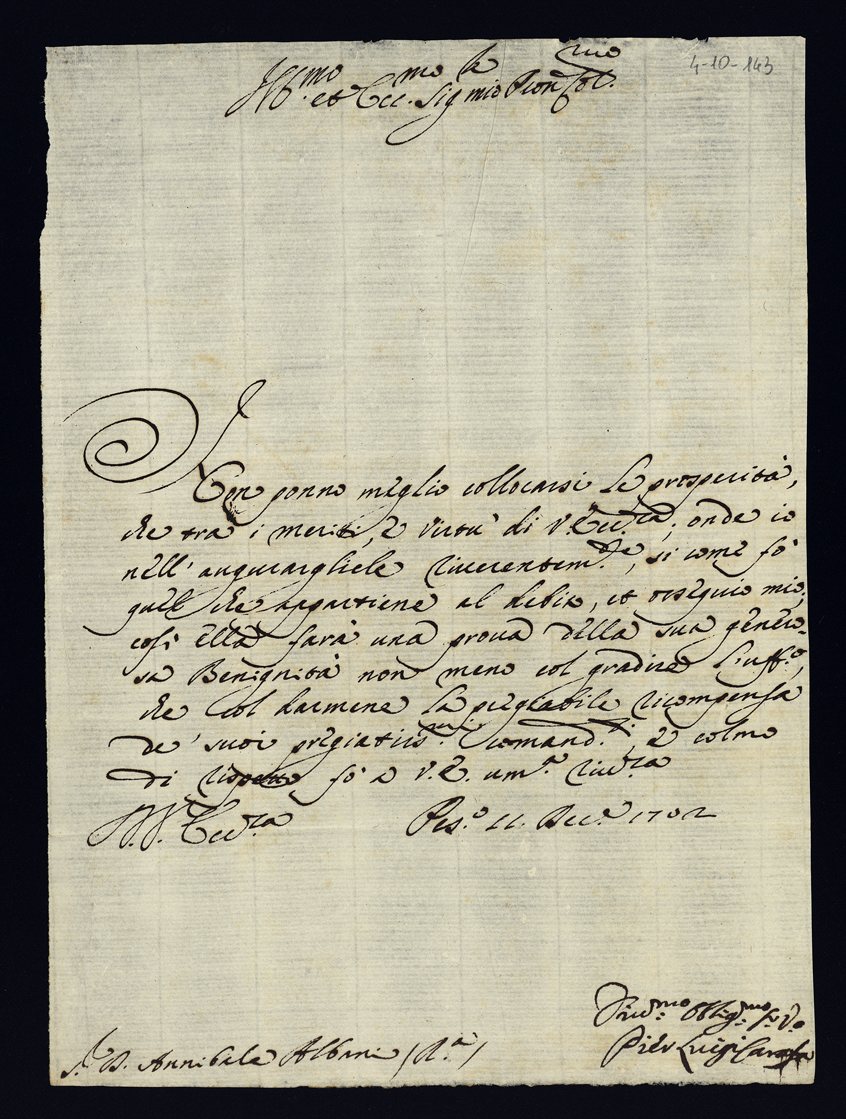 4-10-143
Ill.mo et Ecc.mo Sig.re mio Pron Col.mo
Non ponno meglio collocarsi le prosperità,
che tra i meriti, e virtù di V. Ecc.za; onde io
nell' augurargliele riverentem.te, si come fò
quel che appartiene al debito, et ossequio mio,
così ella farà una prova della sua genero-
sa Benignità non meno col gradire l'uff.o,
che col darmene la pregiabile ricompensa
de' suoi pregiatiss.mi comand.ti, e colmo
di rispetto fò a V. E. um.a riv.za
V. Ecc.za Pes.o 11. Dec.e 1702
Div.mo Obblig.mo Se.re V.o
Pier Luigi Carafa
S.r D. Annibale Albani (R.a)